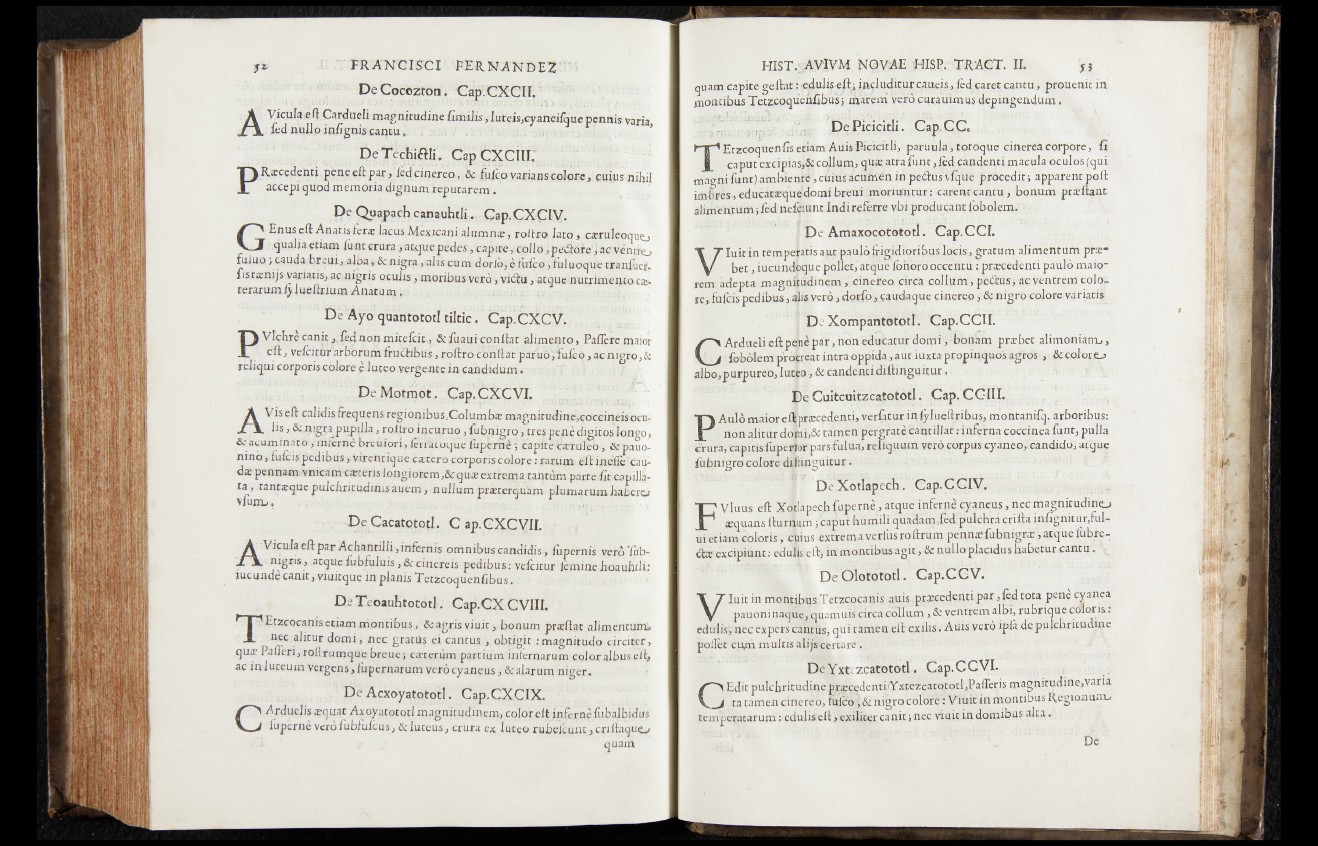 52 FRANCISCI FERNANDEZ
De Cocozton. Cap.CXCII.
AVicula eſt Cardueli magnitudine ſimilis, luteis,cyaneiſque pennis varia,
ſed nullo inſignis cantu.
De Techictli. Cap CXCIII.
PRæcedenti pene eſt par, ſed cinereo, & fuſco varians colore, cuius nihil
accepi quod memoria dignum reputarem.
De Quapach canauhtli. Cap.CXCIV.
GEnus eſt Anatis feræ lacus Mexicani alumnæ, roſtro lato, cæruleoque,
qualia etiam ſunt crura, atque pedes, capite, collo, pectore, ac ventre
fuluo; cauda breui, alba, & nigra, alis cum dorſo, è fuſco, fuluoque tranſuer-
ſis tænijs variatis, ac nigris oculis, moribus verò, victu, atque nutrimento cæ-
terarum ſylueſtrium Anatum.
De Ayo quantototl tiltic. Cap.CXCV.
PVlchrè canit, ſed non miteſcit, & ſuaui conſtat alimento, Paſſere maior
eſt, veſcitur arborum fructibus, roſtro conſtat paruo, fuſco, ac nigro, &
reliqui corporis colore è luteo vergente in candidum.
De Motmot. Cap.CXCVI.
AVis eſt calidis frequens regionibus,Columbæ magnitudine,coccineis ocu-
lis, & nigra pupilla, roſtro incuruo, ſubnigro, tres penè digitos longo,
& acuminato, infernè breuiori, ſerratoque ſupernè; capite cæruleo, & pauo-
nino, fuſcis pedibus, virentique cætero corporis colore: rarum eſt ineſſe cau-
dæ pennam vnicam cæteris longiorem,& quæ extrema tantùm parte ſit capilla-
ta, tantæque pulchritudinis auem, nullum præterquam plumarum habere
vſum.
De Cacatototl. Cap.CXCVII.
AVicula eſt par Achantilli, infernis omnibus candidis, ſupernis verò ſub-
nigris, atque ſubfuluis, & cinereis pedibus: veſcitur ſemine hoauhtli:
iucundè canit, viuitque in planis Tetzcoquenſibus.
De Teoauhtototl. Cap.CXCVIII.
TEtzcocanis etiam montibus, & agris viuit, bonum præſtat alimentum,
nec alitur domi, nec gratus ei cantus, obtigit: magnitudo circiter,
quæ Paſſeri, roſtrumque breue; cæterùm partium infernarum color albus eſt,
ac in luteum vergens, ſupernarum verò cyaneus, & alarum niger.
De Acxoyatototl. Cap.CXCIX.
CArduelis æquat Axoyatototl magnitudinem, color eſt infernè ſubalbidus
ſupernè verò ſubfuſcus, & luteus, crura ex luteo rubeſcunt, criſtaque
quam
HIST. AVIVM NOVAE HISP. TRACT. II. 53
quam capite geſtat: edulis eſt, includitur caueis, ſed caret cantu, prouenit in
montibus Tetzcoquenſibus; marem verò curauimus depingendum.
De Picicitli. Cap.CC.
TEtzcoquenſis etiam Auis Picicitli, paruula, totoque cinerea corpore, ſi
caput excipias,& collum, quæ atra ſunt, ſed candenti macula oculos (qui
magni ſunt) ambiente, cuius acumen in pectus vſque procedit; apparent poſt
imbres, educatæque domi breui moriuntur: carent cantu, bonum præſtant
alimentum; ſed neſciunt Indi referre vbi producant ſobolem.
De Amaxocotototl. Cap.CCI.
VIuit in temperatis aut paulò frigidioribus locis, gratum alimentum præ-
bet, iucundoque pollet, atque ſonoro occentu: præcedenti paulò maio-
rem adepta magnitudinem, cinereo circa collum, pectus, ac ventrem colo-
re, fuſcis pedibus, alis verò, dorſo, caudaque cinereo, & nigro colore variatis
De Xompantototl. Cap.CCII.
CArdueli eſt penè par, non educatur domi, bonam præbet alimoniam,
ſobolem procreat intra oppida, aut iuxta propinquos agros, & colore
albo,purpureo, luteo, & candenti diſtinguitur.
De Cuitcuitzcatototl. Cap.CCIII.
PAulò maior eſt præcedenti, verſatur in ſylueſtribus, montaniſq. arboribus:
non alitur domi,& tamen pergratè cantillat: inferna coccinea ſunt, pulla
crura, capitis ſuperior pars fulua, reliquum verò corpus cyaneo, candido, atque
ſubnigro colore diſtinguitur.
De Xotlapech. Cap.CCIV.
FVluus eſt Xotlapech ſupernè, atque infernè cyaneus, nec magnitudine
æquans ſturnum; caput humili quadam ſed pulchra criſta inſignitur,ful-
ui etiam coloris, cuius extrema verſus roſtrum pennæ ſubnigræ, atque ſubre-
ctæ excipiunt: edulis eſt, in montibus agit, & nullo placidus habetur cantu.
De Olotototl. Cap.CCV.
VIuit in montibus Tetzcocanis auis præcedenti par, ſed tota penè cyanea
pauoninaque, quamuis circa collum, & ventrem albi, rubrique coloris:
edulis, nec expers cantus, qui tamen eſt exilis. Auis verò ipſa de pulchritudine
poſſet cum multis alijs certare.
De Yxtezcatototl. Cap.CCVI.
CEdit pulchritudine præcedenti Yxtezcatototl,Paſſeris magnitudine,varia
ta tamen cinereo, fuſco, & nigro colore: Viuit in montibus Regionum
temperatarum: edulis eſt, exiliter canit; nec viuit in domibus alta.
De